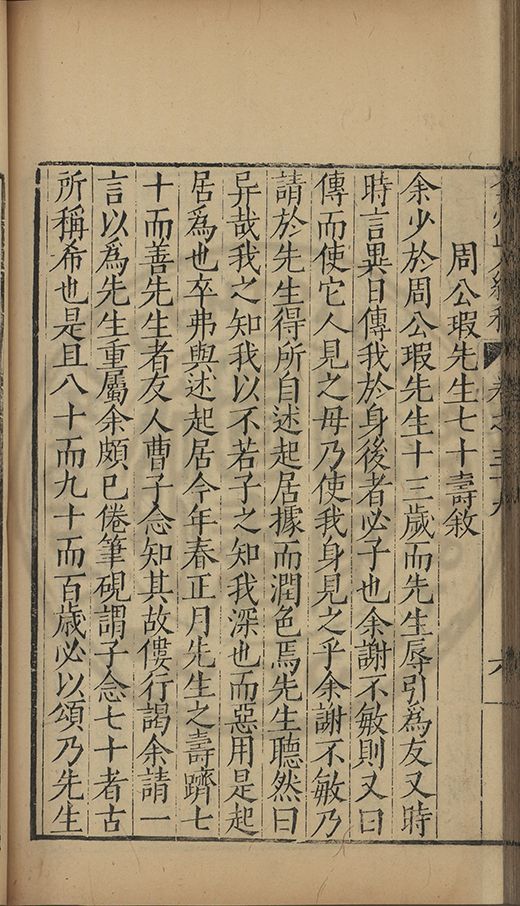 周公瑕先生七十壽敘
余少於周公瑕先生十三歲而先生辱引爲友又時
時言異日傳我於身後者必子也余謝不敏則又曰
傳而使它人見之毋乃使我身見之乎余謝不敏乃
請於先生得所自述起居據而潤色焉先生聽然曰
异哉我之知我以不若子之知我深也而惡用是起
居爲也卒弗與述起居今年春正月先生之壽躋七
十而善先生者友人曹子念知其故僂行謁余請一
言以爲先生重屬余頗巳倦筆硯謂子念七十者古
所稱希也是且八十而九十而百歲必以頌乃先生